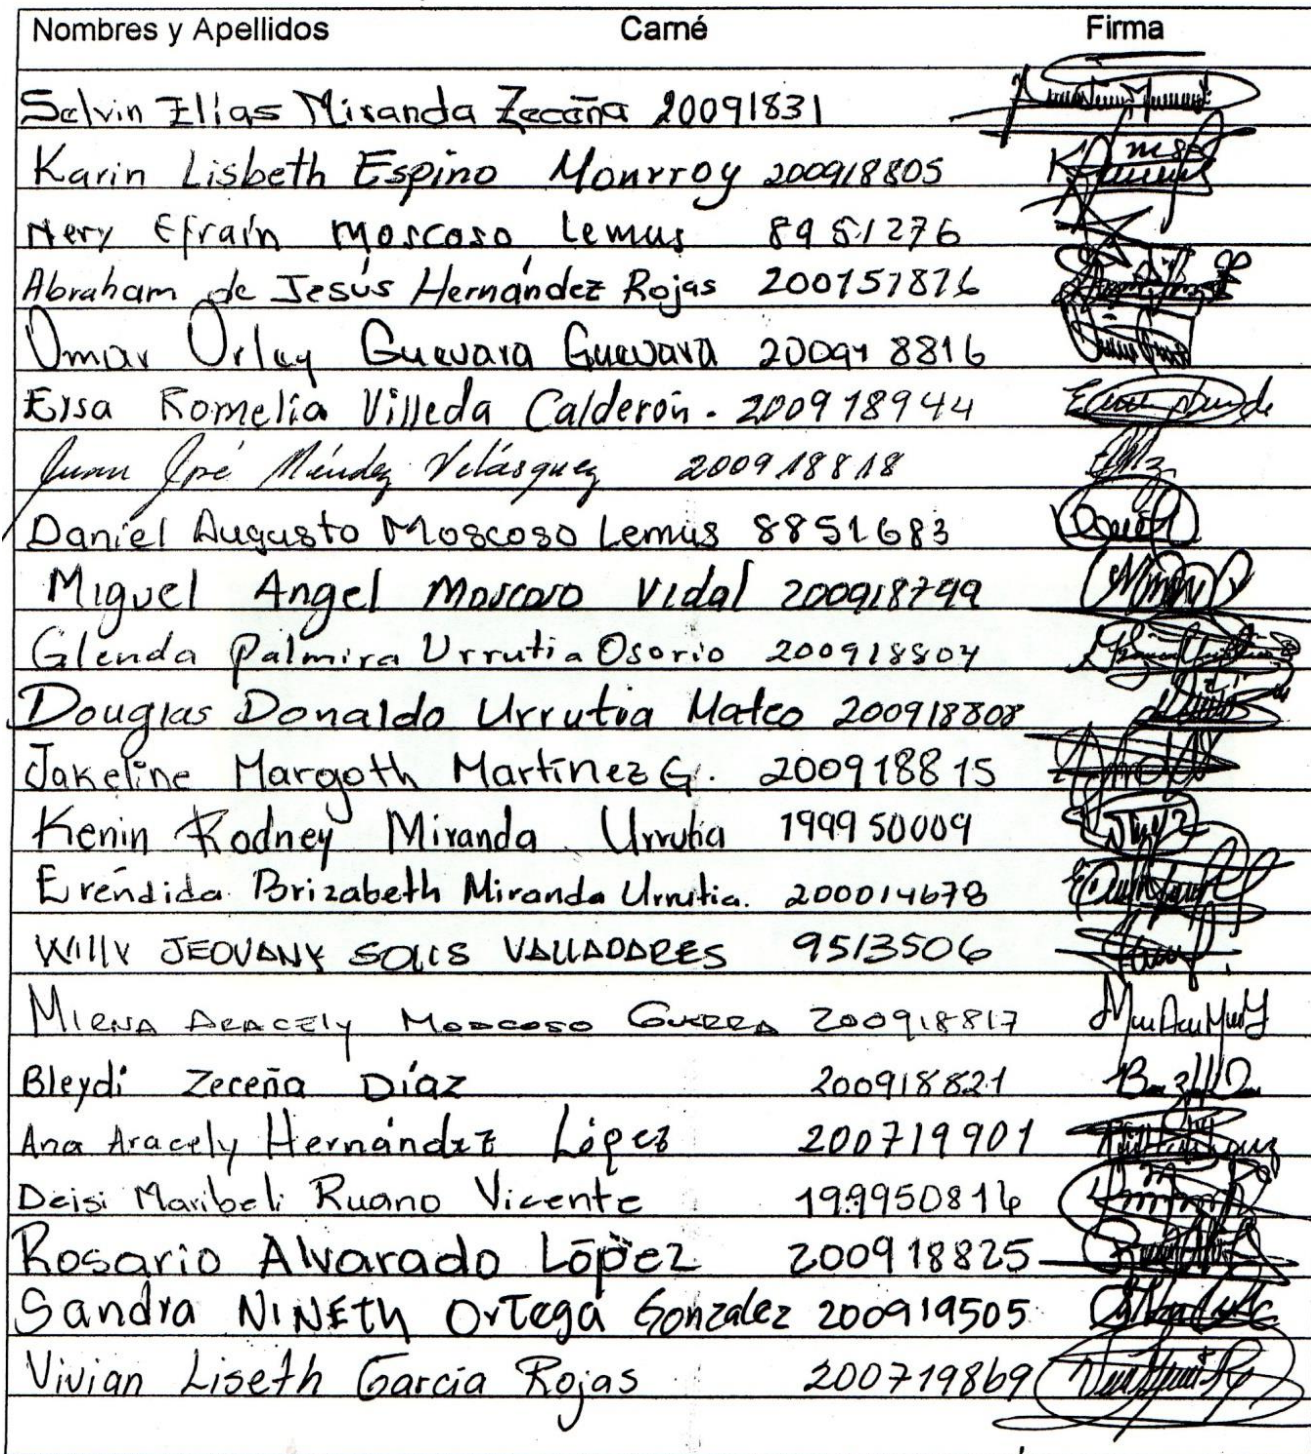 Nombres y Apellidos Carné Firma
Selvin Elías Miranda Zeceña 20091831
Karin Lisbeth Espino Monrroy 200918805
Nery Efraín Moscoso Lemus 8951276
Abraham de Jesús Hernández Rojas 200751876
Omar Orley Guevara Guevara 200918816
Elsa Romelia Villeda Calderón. 200918944
Juan José Méndez Velásquez 200918818
Daniel Augusto Moscoso Lemus 8851683
Miguel Angel Moscoso Vidal 200918799
Glenda Palmira Urrutia Osorio 200918804
Douglas Donaldo Urrutia Mateo 200918808
Jakeline Margoth Martínez G. 200918815
Kenin Rodney Miranda Urrutia 199950009
Eréndida Brizabeth Miranda Urrutia. 200014678
WILLY JEOVANY SOLIS VALLADARES 9513506
MIRNA ARACELY MOSCOSO GUERRA 200918817
Bleydi Zeceña Díaz 200918821
Ana Aracely Hernández López 200719901
Deisi Maribel Ruano Vicente 199950816
Rosario Alvarado López 200918825
Sandra NINETH Ortega Gonzalez 200919505
Vivian Liseth García Rojas 200719869